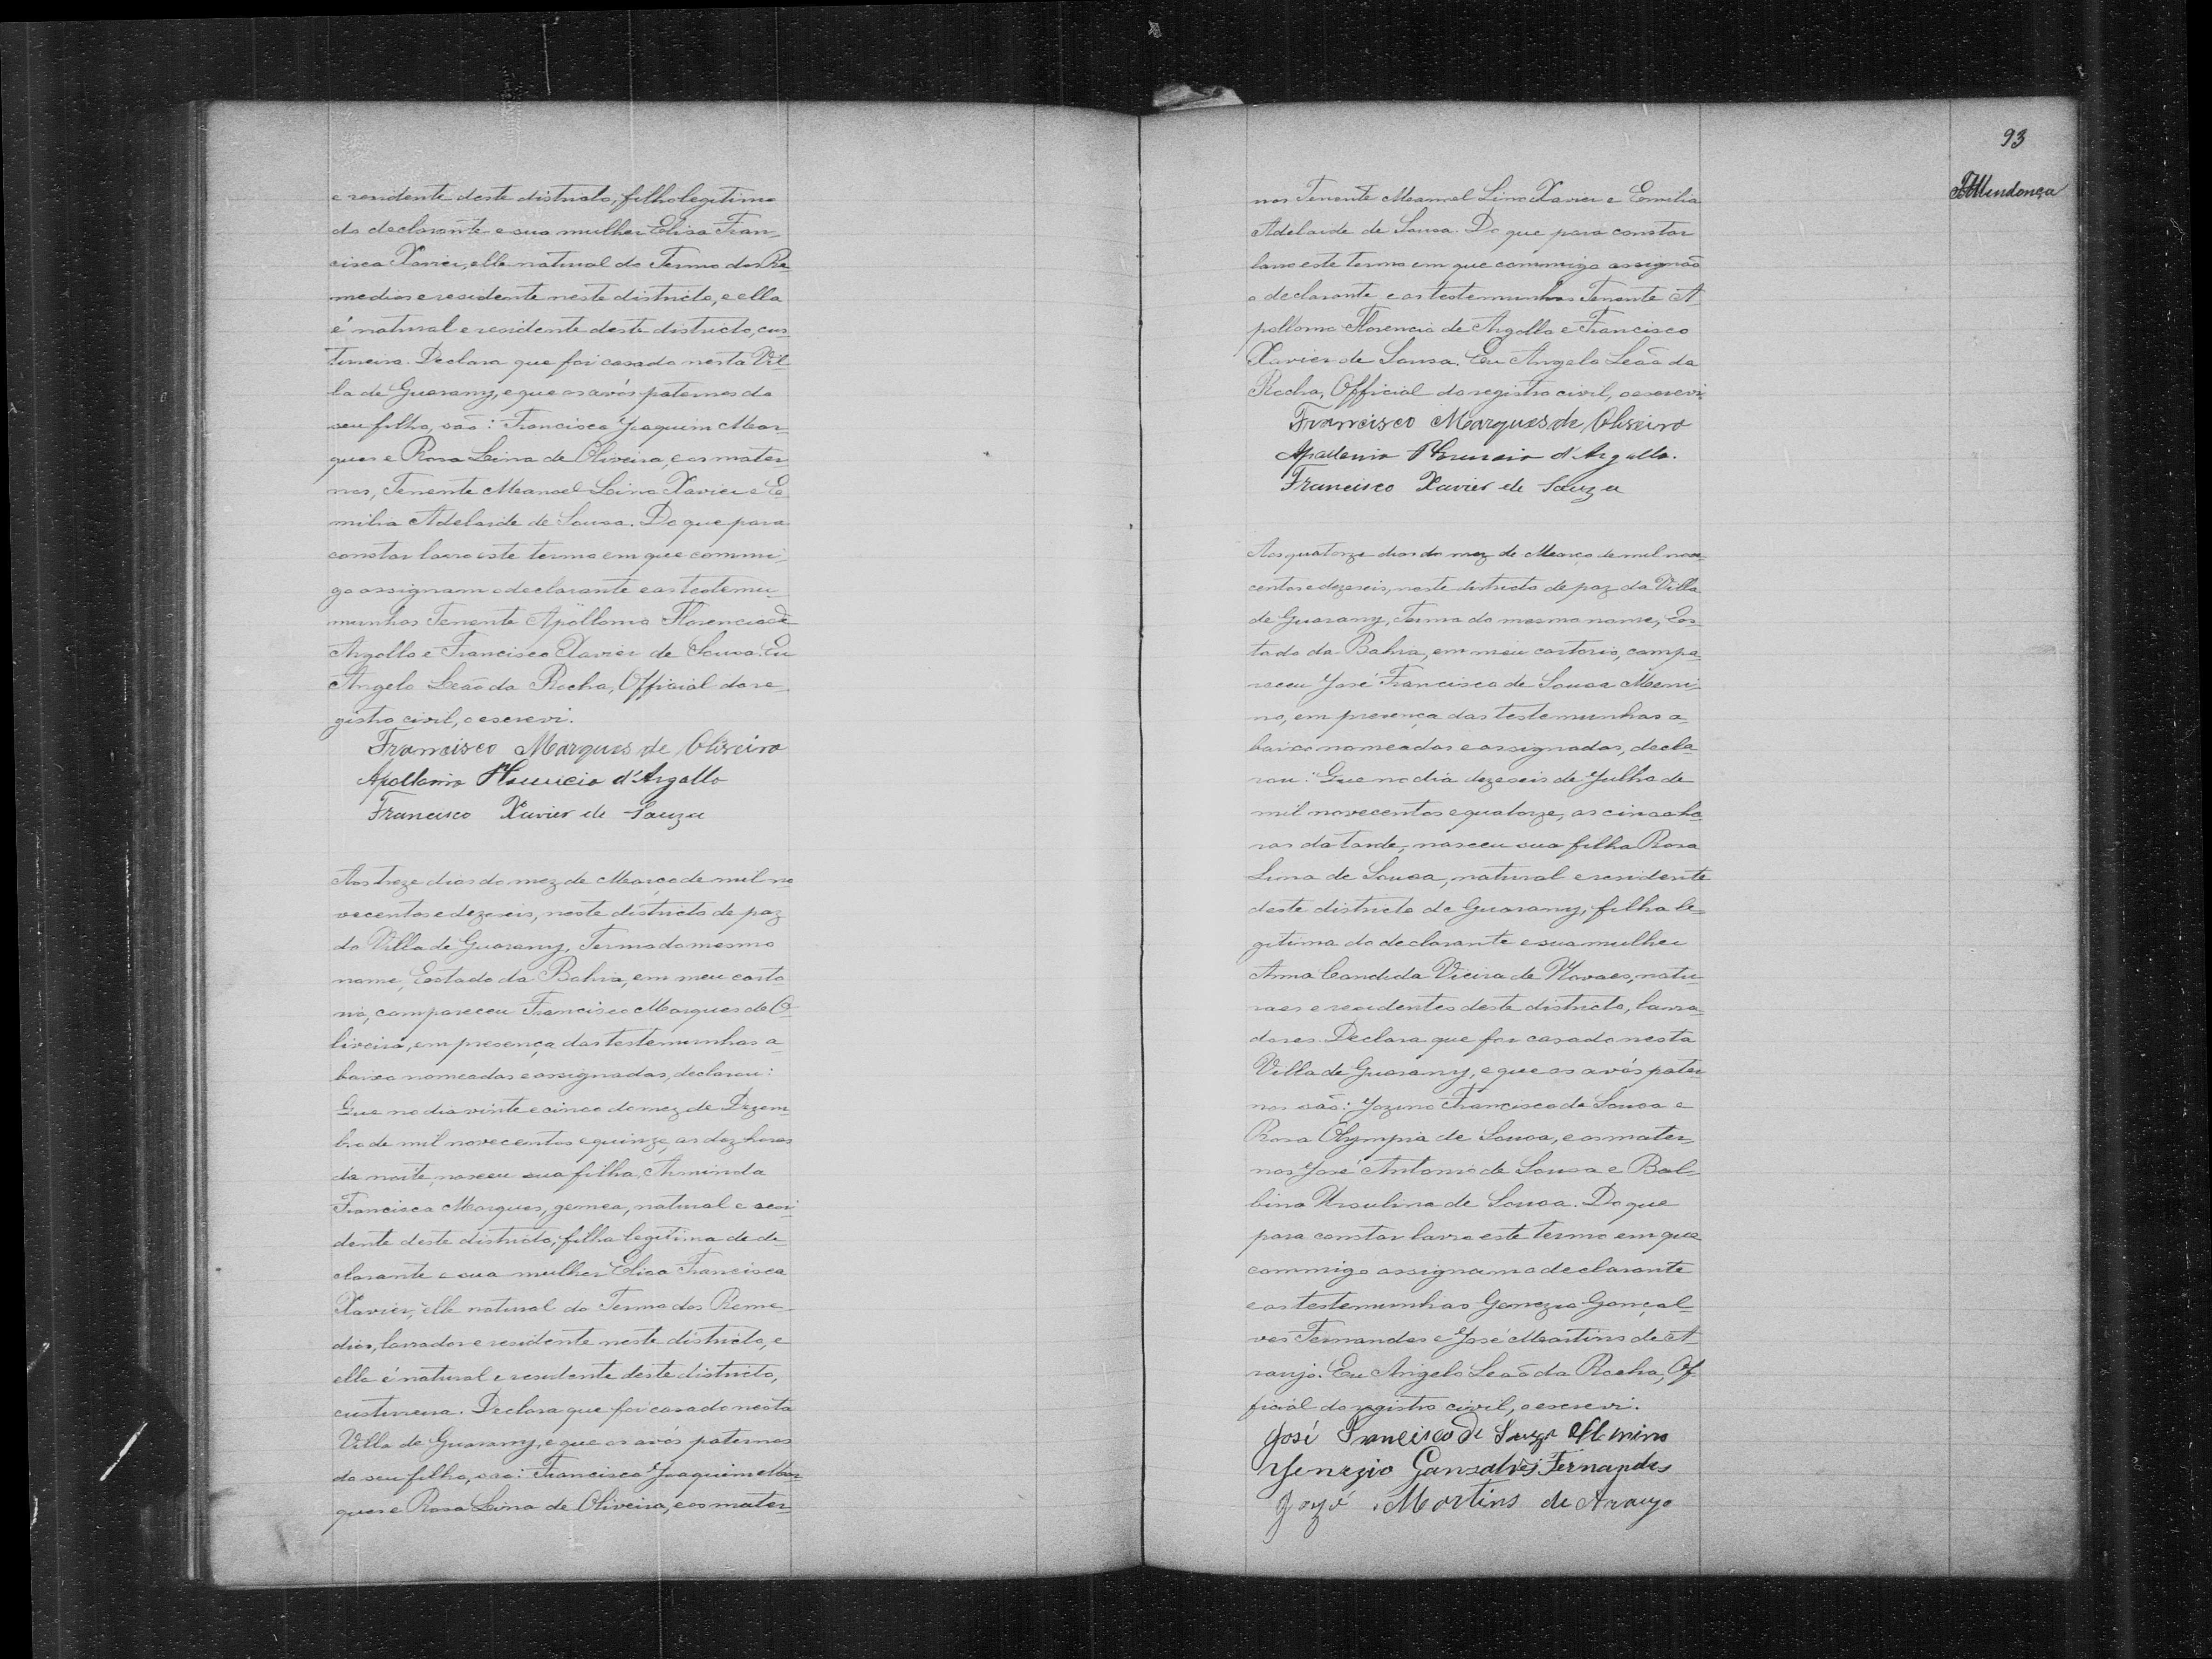 e residente deste districto, filho legitimo
do declarante e sua mulher Elisa Fran-
cisca Xavier, elle natural do Termo dos Re-
medios e residente neste districto, e ella
é natural e residente deste districto, cus-
tureira. Declara que foi casado nesta Vil-
la de Guarany, e que os avós paternos do
seu filho, são: Francisco Joaquim Mar-
ques e Rosa Lina de Oliveira, e os mater-
nos, Tenente Manoel Lino Xavier e E-
milia Adelaide de Sousa. Do que para
constar lavro este termo em que commi-
go assignam o declarante e as testemu-
munhas Tenente Apollonio Florencio de
Argollo e Francisco Xavier de Sousa. Eu
Angelo Leão da Rocha, Official do re-
gistro civil, o escrevi.
Francisco Marques de Oliveira
Apollonio Florencio d'Argollo
Francisco Xavier de Souza
Aos treze dias do mez de Março de mil no-
vecentos e dezeseis, neste districto de paz
da Villa de Guarany, Termo do mesmo
nome, Estado da Bahia, em meu carto-
rio, compareceu Francisco Marques de O-
liveira, em presença das testemunhas a-
baixo nomeadas e assignadas, declarou:
Que no dia vinte e cinco do mez de Dezem-
bro de mil novecentos e quinze, as dez horas
da noite, nasceu sua filha, Arminda
Francisca Marques, gemea, natural e resi-
dente deste districto, filha legitima do de-
clarante e sua mulher Elisa Francisca
Xavier, elle natural do Termo dos Reme-
dios, lavrador e residente neste districto, e
ella é natural e residente deste districto,
custureira. Declara que foi casado nesta
Villa de Guarany, e que os avós paternos
do seu filho, são: Francisco Joaquim Mar-
ques e Rosa Lina de Oliveira, e os mater-
93
Mendonça
nos Tenente Manoel Lino Xavier e Emilia
Adelaide de Sousa. Do que para constar
lavro este termo em que commigo assignão
o declarante e as testemunhas Tenente A-
pollonio Florencio de Argollo e Francisco
Xavier de Sousa. Eu Angelo Leão da
Rocha, Official do registro civil, o escrevi.
Francisco Marques de Oliveira
Apollonio Florencio d'Argollo.
Francisco Xavier de Souza
Aos quatorze dias do mez de Março de mil nove-
centos e dezeseis, neste districto de paz da Villa
de Guarany, Termo do mesmo nome, Es-
tado da Bahia, em meu cartorio, compa-
receu José Francisco de Sousa Meni-
no, em presença das testemunhas a-
baixo nomeadas e assignadas, decla-
rou: Que no dia dezeseis de Julho de
mil novecentos e quatorze, as cinco ho-
ras da tarde, nasceu sua filha Rosa
Lima de Sousa, natural e residente
deste districto de Guarany, filha le-
gitima do declarante e sua mulher
Anna Candida Vieira de Novaes, natu-
raes e residentes deste districto, lavra-
dores. Declara que foi casado nesta
Villa de Guarany, e que os avós pater-
nos são: Jozino Francisco de Sousa e
Rosa Olympia de Sousa, e os mater-
nos José Antonio de Sousa e Bal-
bina Ursulina de Sousa. Do que
para constar lavro este termo em que
commigo assignam o declarante
e as testemunhas Genezio Gonçal-
ves Fernandes e José Martins de A-
raujo. Eu Angelo Leão da Rocha, Of-
ficial do registro civil, o escrevi.
José Francisco de Souza Menino
Genezio Gonsalves Fernandes
Jozé Martins de Araujo